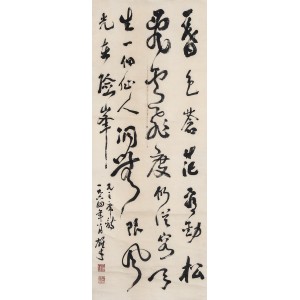 暮色苍茫看劲松
乱云飞渡仍从容天
生一个仙人洞无限风
光在险峰
毛主席诗
一九六四年